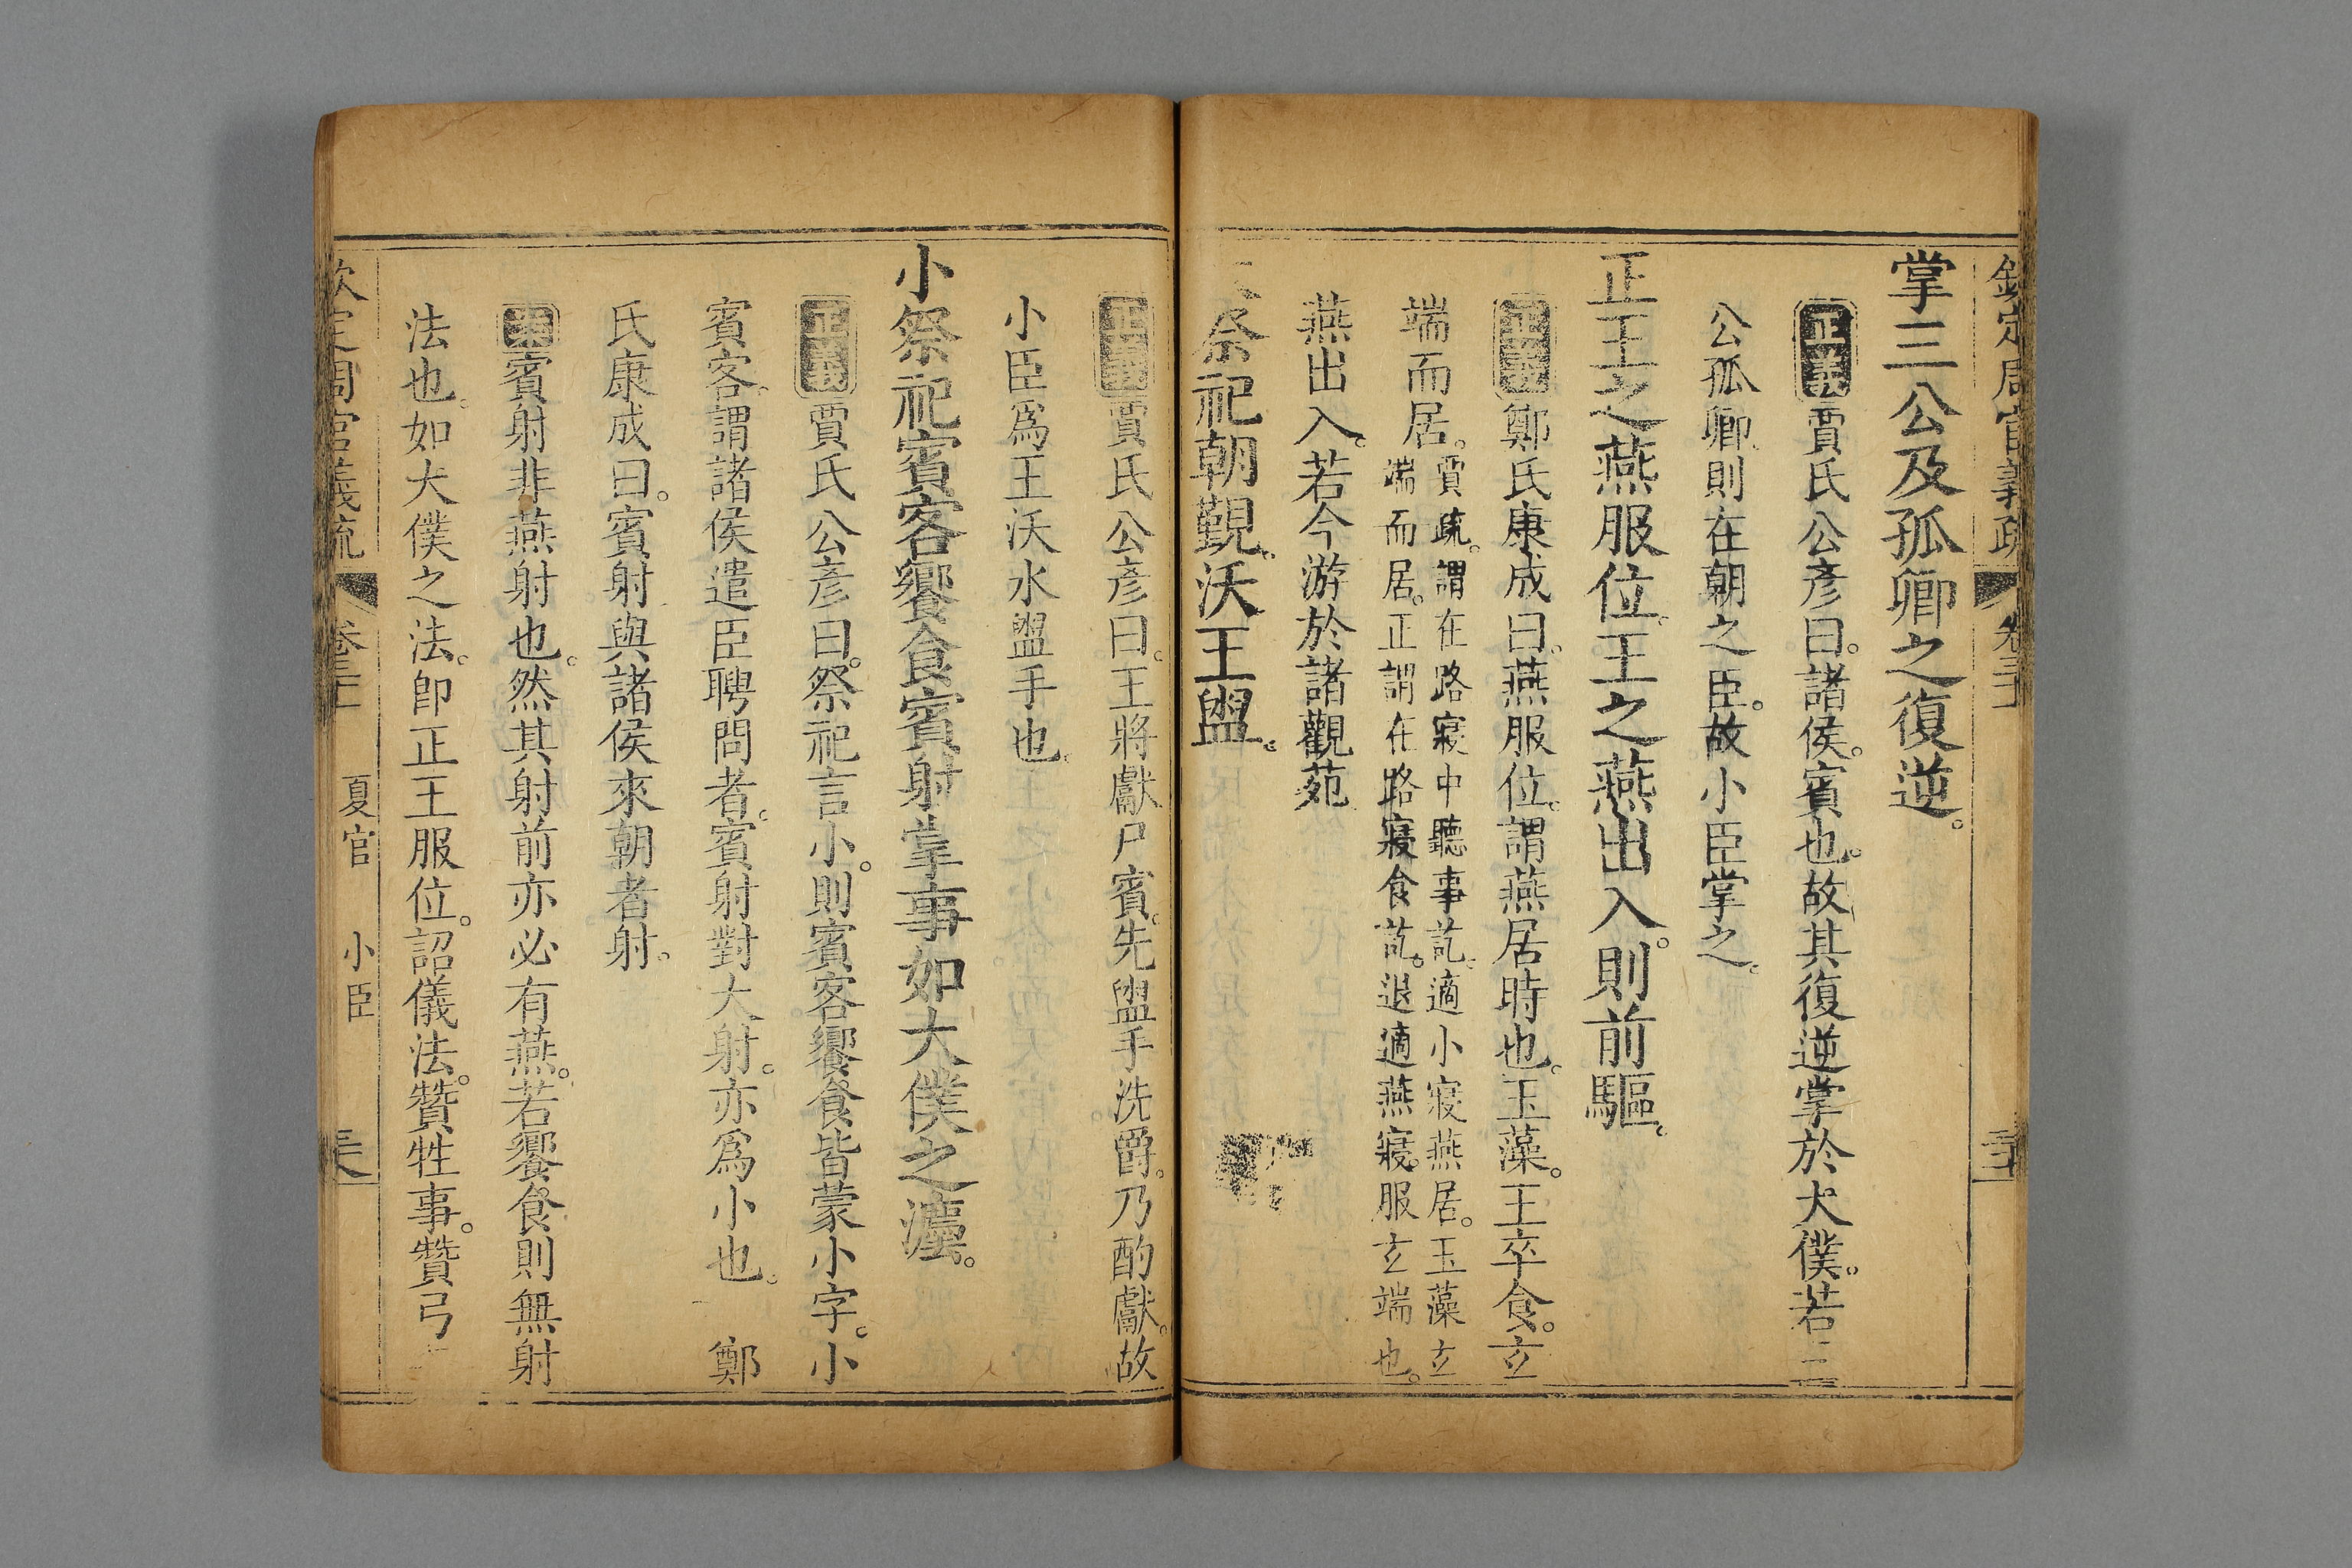 欽定周官義疏 卷三十
掌三公及孤卿之復逆。
正義賈氏公彥曰。諸侯。賓也。故其復逆掌於大僕。若三
公孤卿。則在朝之臣。故小臣掌之。
正王之燕服位。王之燕出入。則前驅。
正義鄭氏康成曰。燕服位。謂燕居時也。玉藻。王卒食。玄
端而居。賈疏。謂在路寢中聽事訖。適小寢燕居。玉藻玄
端而居。正謂在路寢食訖。退適燕寢。服玄端也。
燕出入。若今游於諸觀苑。
祭祀朝覲。沃王盥。
正義賈氏公彥曰。王將獻尸賓。先盥手洗爵。乃酌獻。故
小臣爲王沃水盥手也。
小祭祀賓客饗食賓射掌事如大僕之灋。
正義賈氏公彥曰。祭祀言小。則賓客饗食皆蒙小字。小
賓客。謂諸侯遣臣聘問者。賓射對大射。亦爲小也。 鄭
氏康成曰。賓射與諸侯來朝者射。
案賓射非燕射也。然其射前亦必有燕。若饗食則無射
法也。如大僕之法。卽正王服位。詔儀法。贊牲事。贊弓
欽定周官義疏 卷三十 夏官 小臣